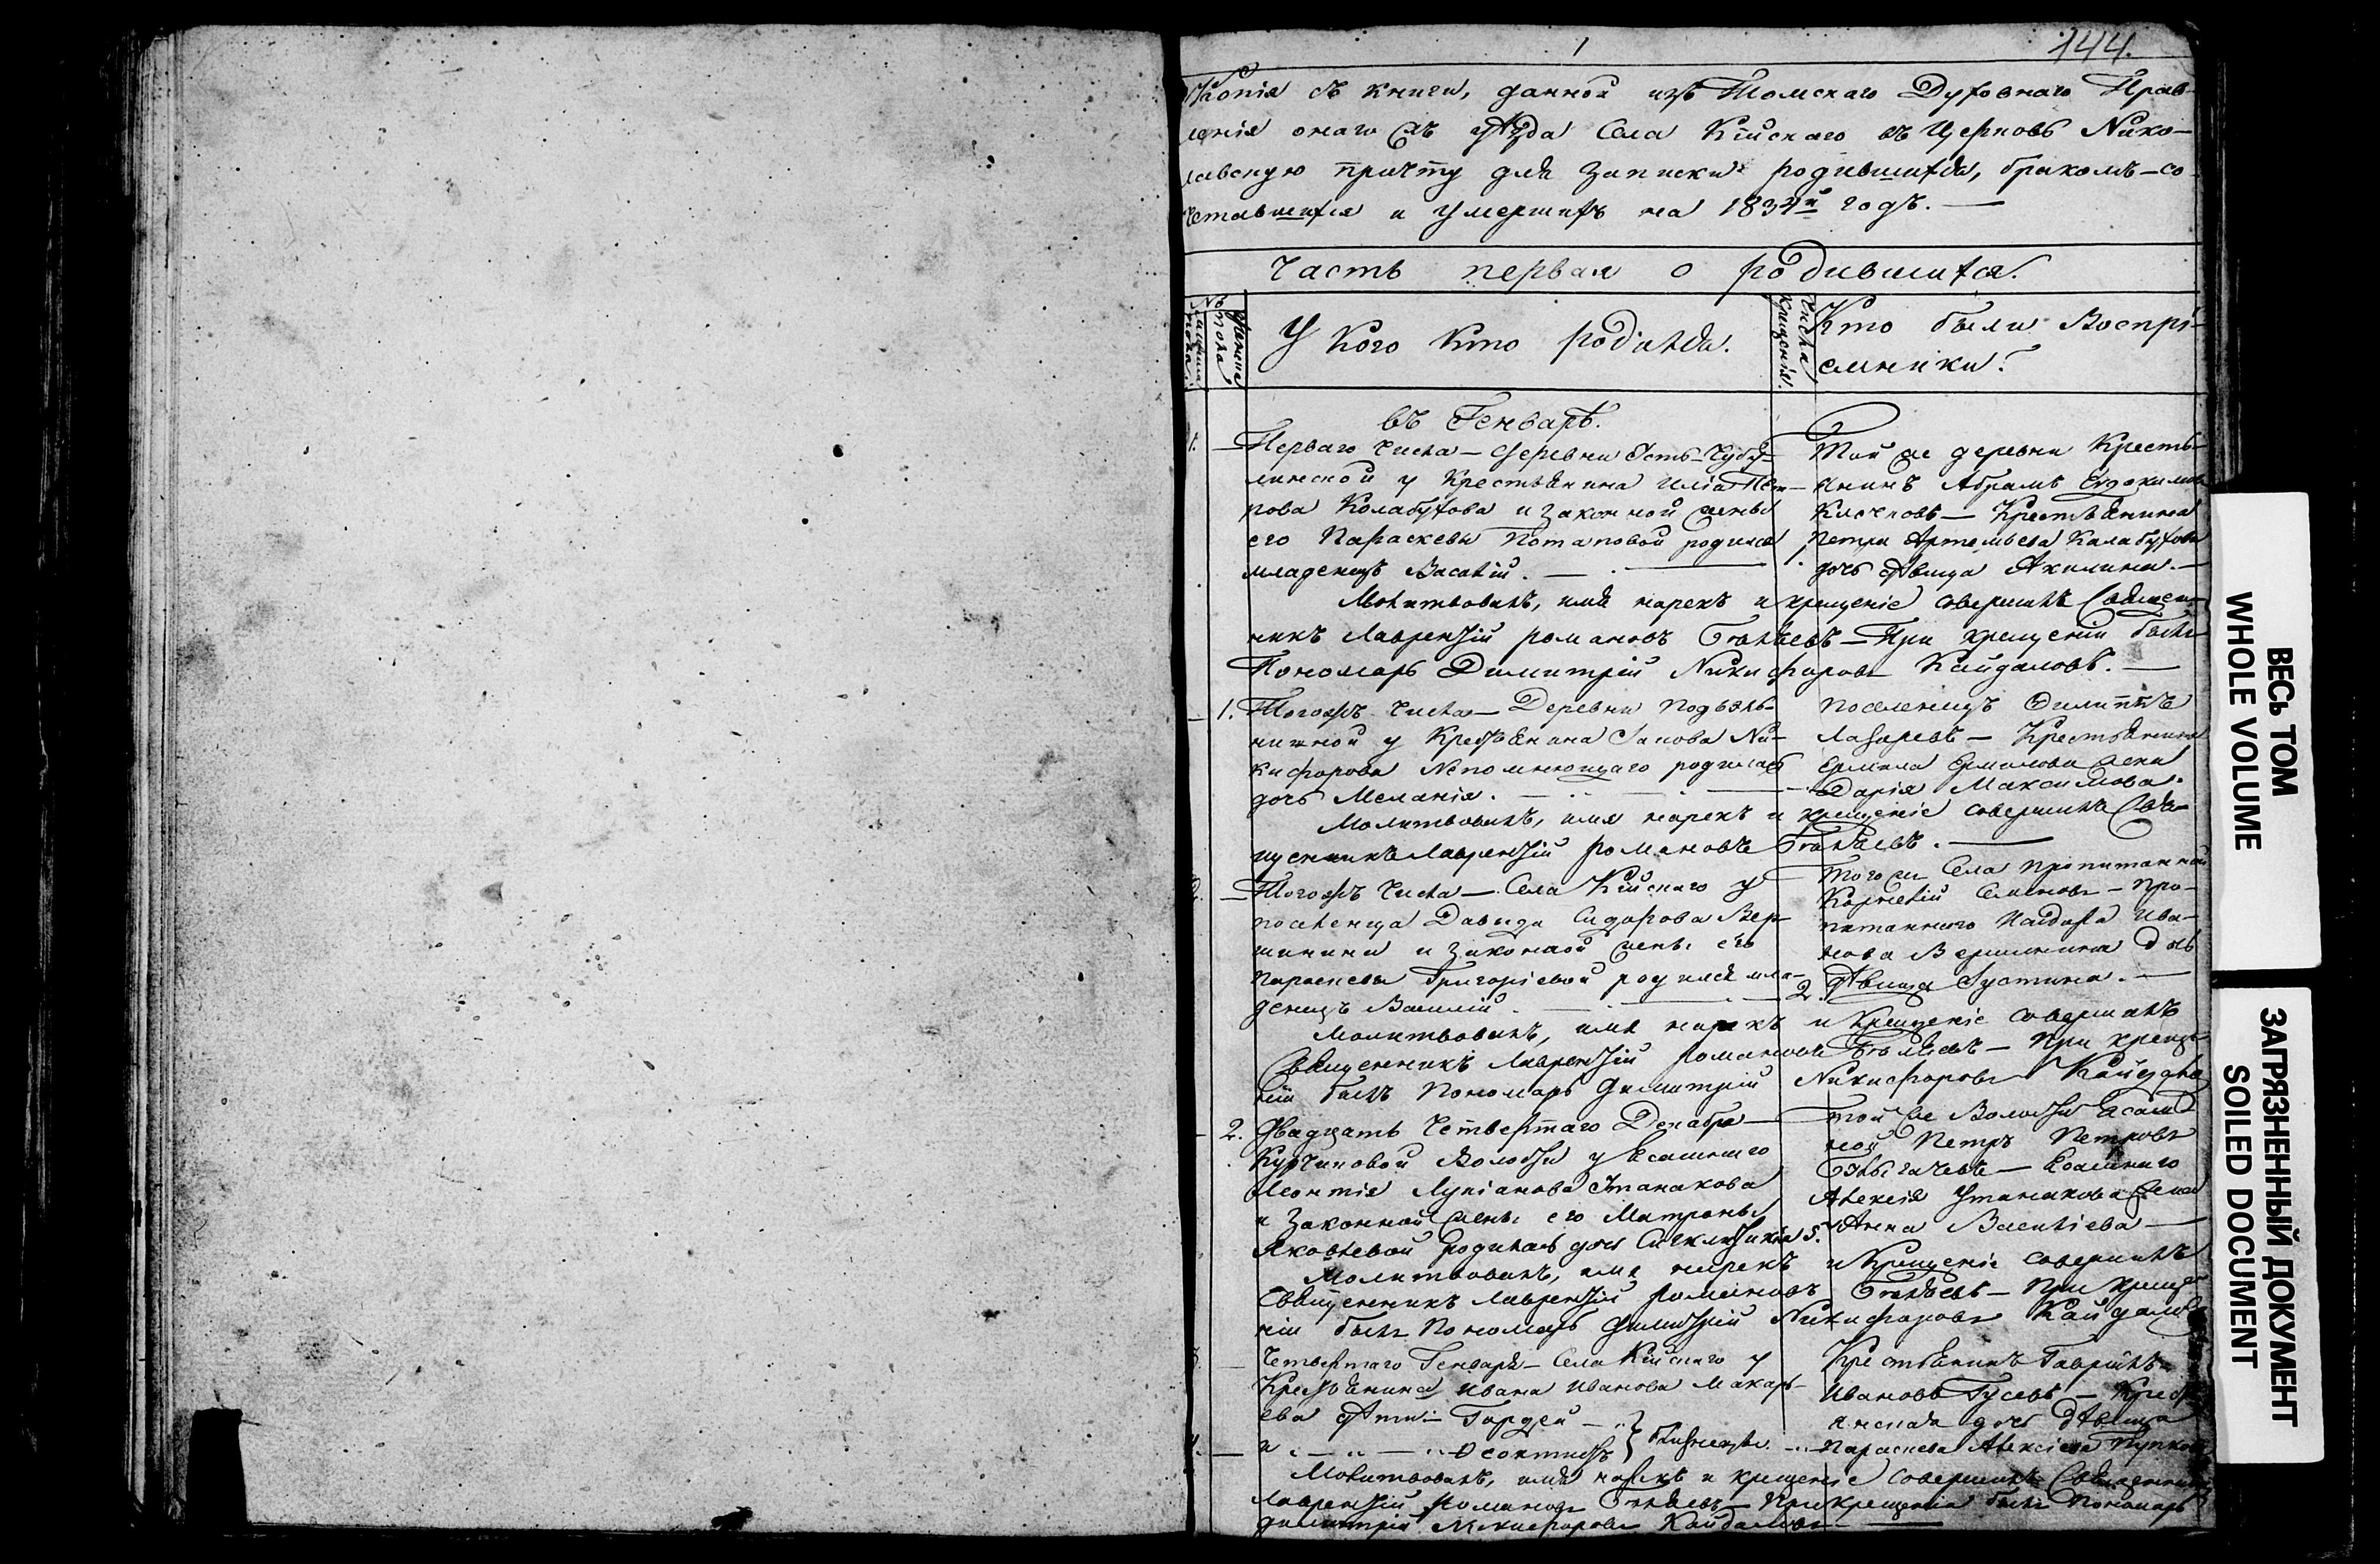 144.
Копія съ книги, данной изъ Томскаго Духовнаго Прав-
ленія онаго жъ уѣзда Села Кійскаго въ Церковь Нико-
лаевскую причту для записки родившихся, бракомъ-со
четавшихся и умершихъ на годъ. —
Часть первая о родившихся.
№
мужеска пола.
женска пола
У кого кто родился.
Числа крещенія.
Кто были Воспрі-
емники?
въ Генварѣ.
1. Перваго числа — деревни Усть-
у Крестьянина Иліи Пет-
рова Колабухова и законной жены
его Параскевы Потаповой родился
младенецъ Василій. —
Той же деревни Кресть-
янинъ Абрамъ Евдокимовъ
— Крестьянина
Петра Артемьева Калабухова
1. дочь дѣвица Акилина. —
Молитвовалъ, имя нарекъ и крещеніе совершилъ Священ-
никъ Лаврентій Романовъ — При крещеніи былъ
Пономарь Димитрій Никифоровъ Кайдаловъ. —
1. Тогожъ числа — Деревни
у Крестьянина Іакова Ни-
кифорова Непомнющаго родилась
дочь Меланія. —
Поселенецъ Филиппъ
Лазаревъ — Крестьянина
Ермила Ермилова жена
Дарія Максимова.
Молитвовалъ, имя нарекъ и крещеніе совершилъ Свя-
щенникъ Лаврентій Романовъ
Тогожъ числа — Села Кійскаго у
поселенца Давида Сидорова Вер-
шинина и законной жены его
Параскевы Григорьевой родился мла-
денецъ Василій.
Того же Села пропитанной
Корнелій Семеновъ — про-
питаннаго Исидора Ива-
нова Вершинина дочь
2. дѣвица Іустина. —
Молитвовалъ, имя нарекъ и Крещеніе совершилъ
Священникъ Лаврентій Романовъ — при креще-
ніи былъ Пономарь Димитрій Никифоровъ
2. Двадцать Четвертаго Декабря —
Курчиковой Волости у Ясашнаго
Леонтія Лукіанова
и Законной жены его Матроны
Яковлевой родилась дочь 5.
Той же Волости Ясаш-
ной Петръ Петровъ
— Ясашнаго
Алексія жена
Анна Васильева —
Молитвовалъ, имя нарекъ и Крещеніе совершилъ
Священникъ Лаврентій Романовъ — При креще-
ніи былъ Пономарь Димитрій Никифоровъ Кайдаловъ
Четвертаго Генваря — Села Кійскаго у
Крестьянина Ивана Иванова Макарь-
ева дѣти — Гордей —
и — Ѳеоктистъ } близнецы.
Крестьянинъ Гавріилъ
Ивановъ Гусевъ — Кресть-
янская дочь дѣвица
Параскева Алексіева
Молитвовалъ, имя нарекъ и крещеніе совершилъ Священникъ
Лаврентій Романовъ — При крещеніи былъ Пономарь
Димитрій Никифоровъ Кайдаловъ —
ВЕСЬ ТОМ
WHOLE VOLUME
ЗАГРЯЗНЕННЫЙ ДОКУМЕНТ
SOILED DOCUMENT